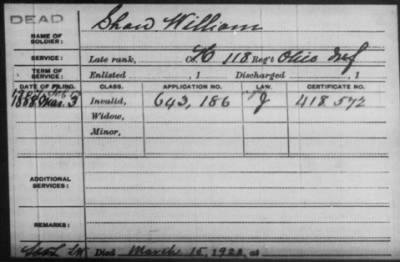 DEAD
NAME OF SOLDIER: Shaw William
SERVICE: Late rank, 118 Reg't Ohio Inf
TERM OF SERVICE: Enlisted , 1 Discharged , 1
DATE OF FILING. CLASS. APPLICATION NO. LAW. CERTIFICATE NO.
1888 Mar. 3 Invalid, 643,186 J 418 572
Widow,
Minor,
ADDITIONAL SERVICES:
REMARKS:
Died March 15, 1922, at